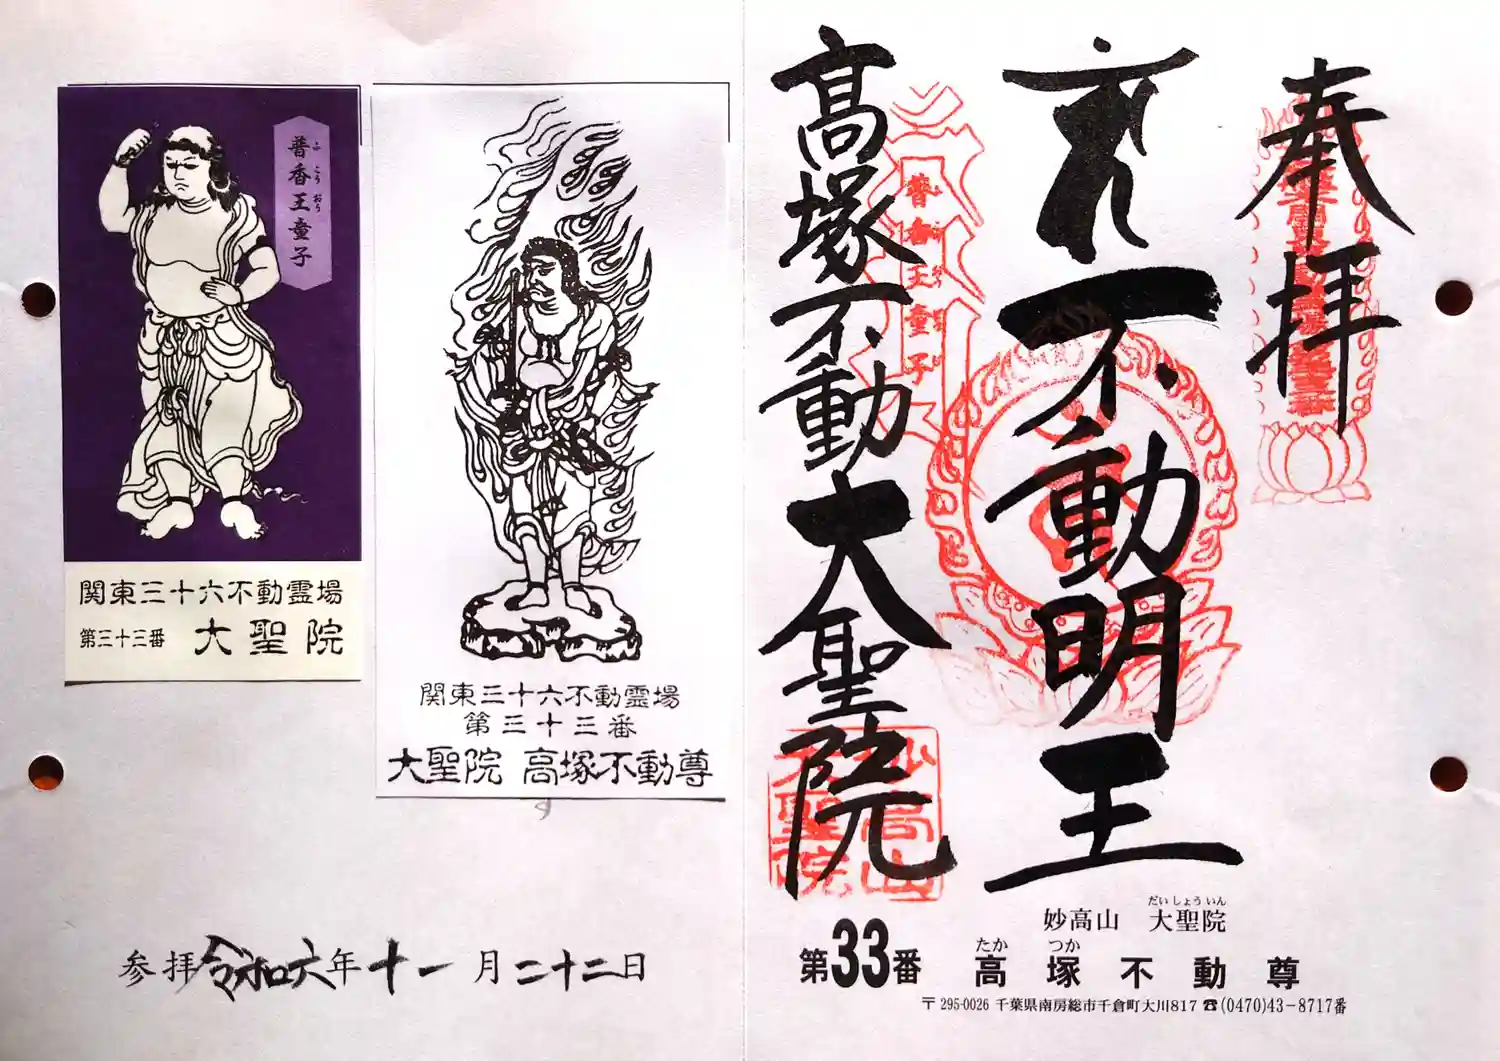 奉拝
不動明王
高塚不動大聖院
普香王童子
妙高山
大聖院
だいしょういん
妙高山 大聖院
たか つか
第33番 高塚不動尊
〒295-0026 千葉県南房総市千倉町大川817 ☎(0470)43-8717番
普香王童子
ふ こう おう
関東三十六不動霊場
第三十三番 大聖院
関東三十六不動霊場
第三十三番
大聖院 高塚不動尊
参拝令和六年十一月二十二日